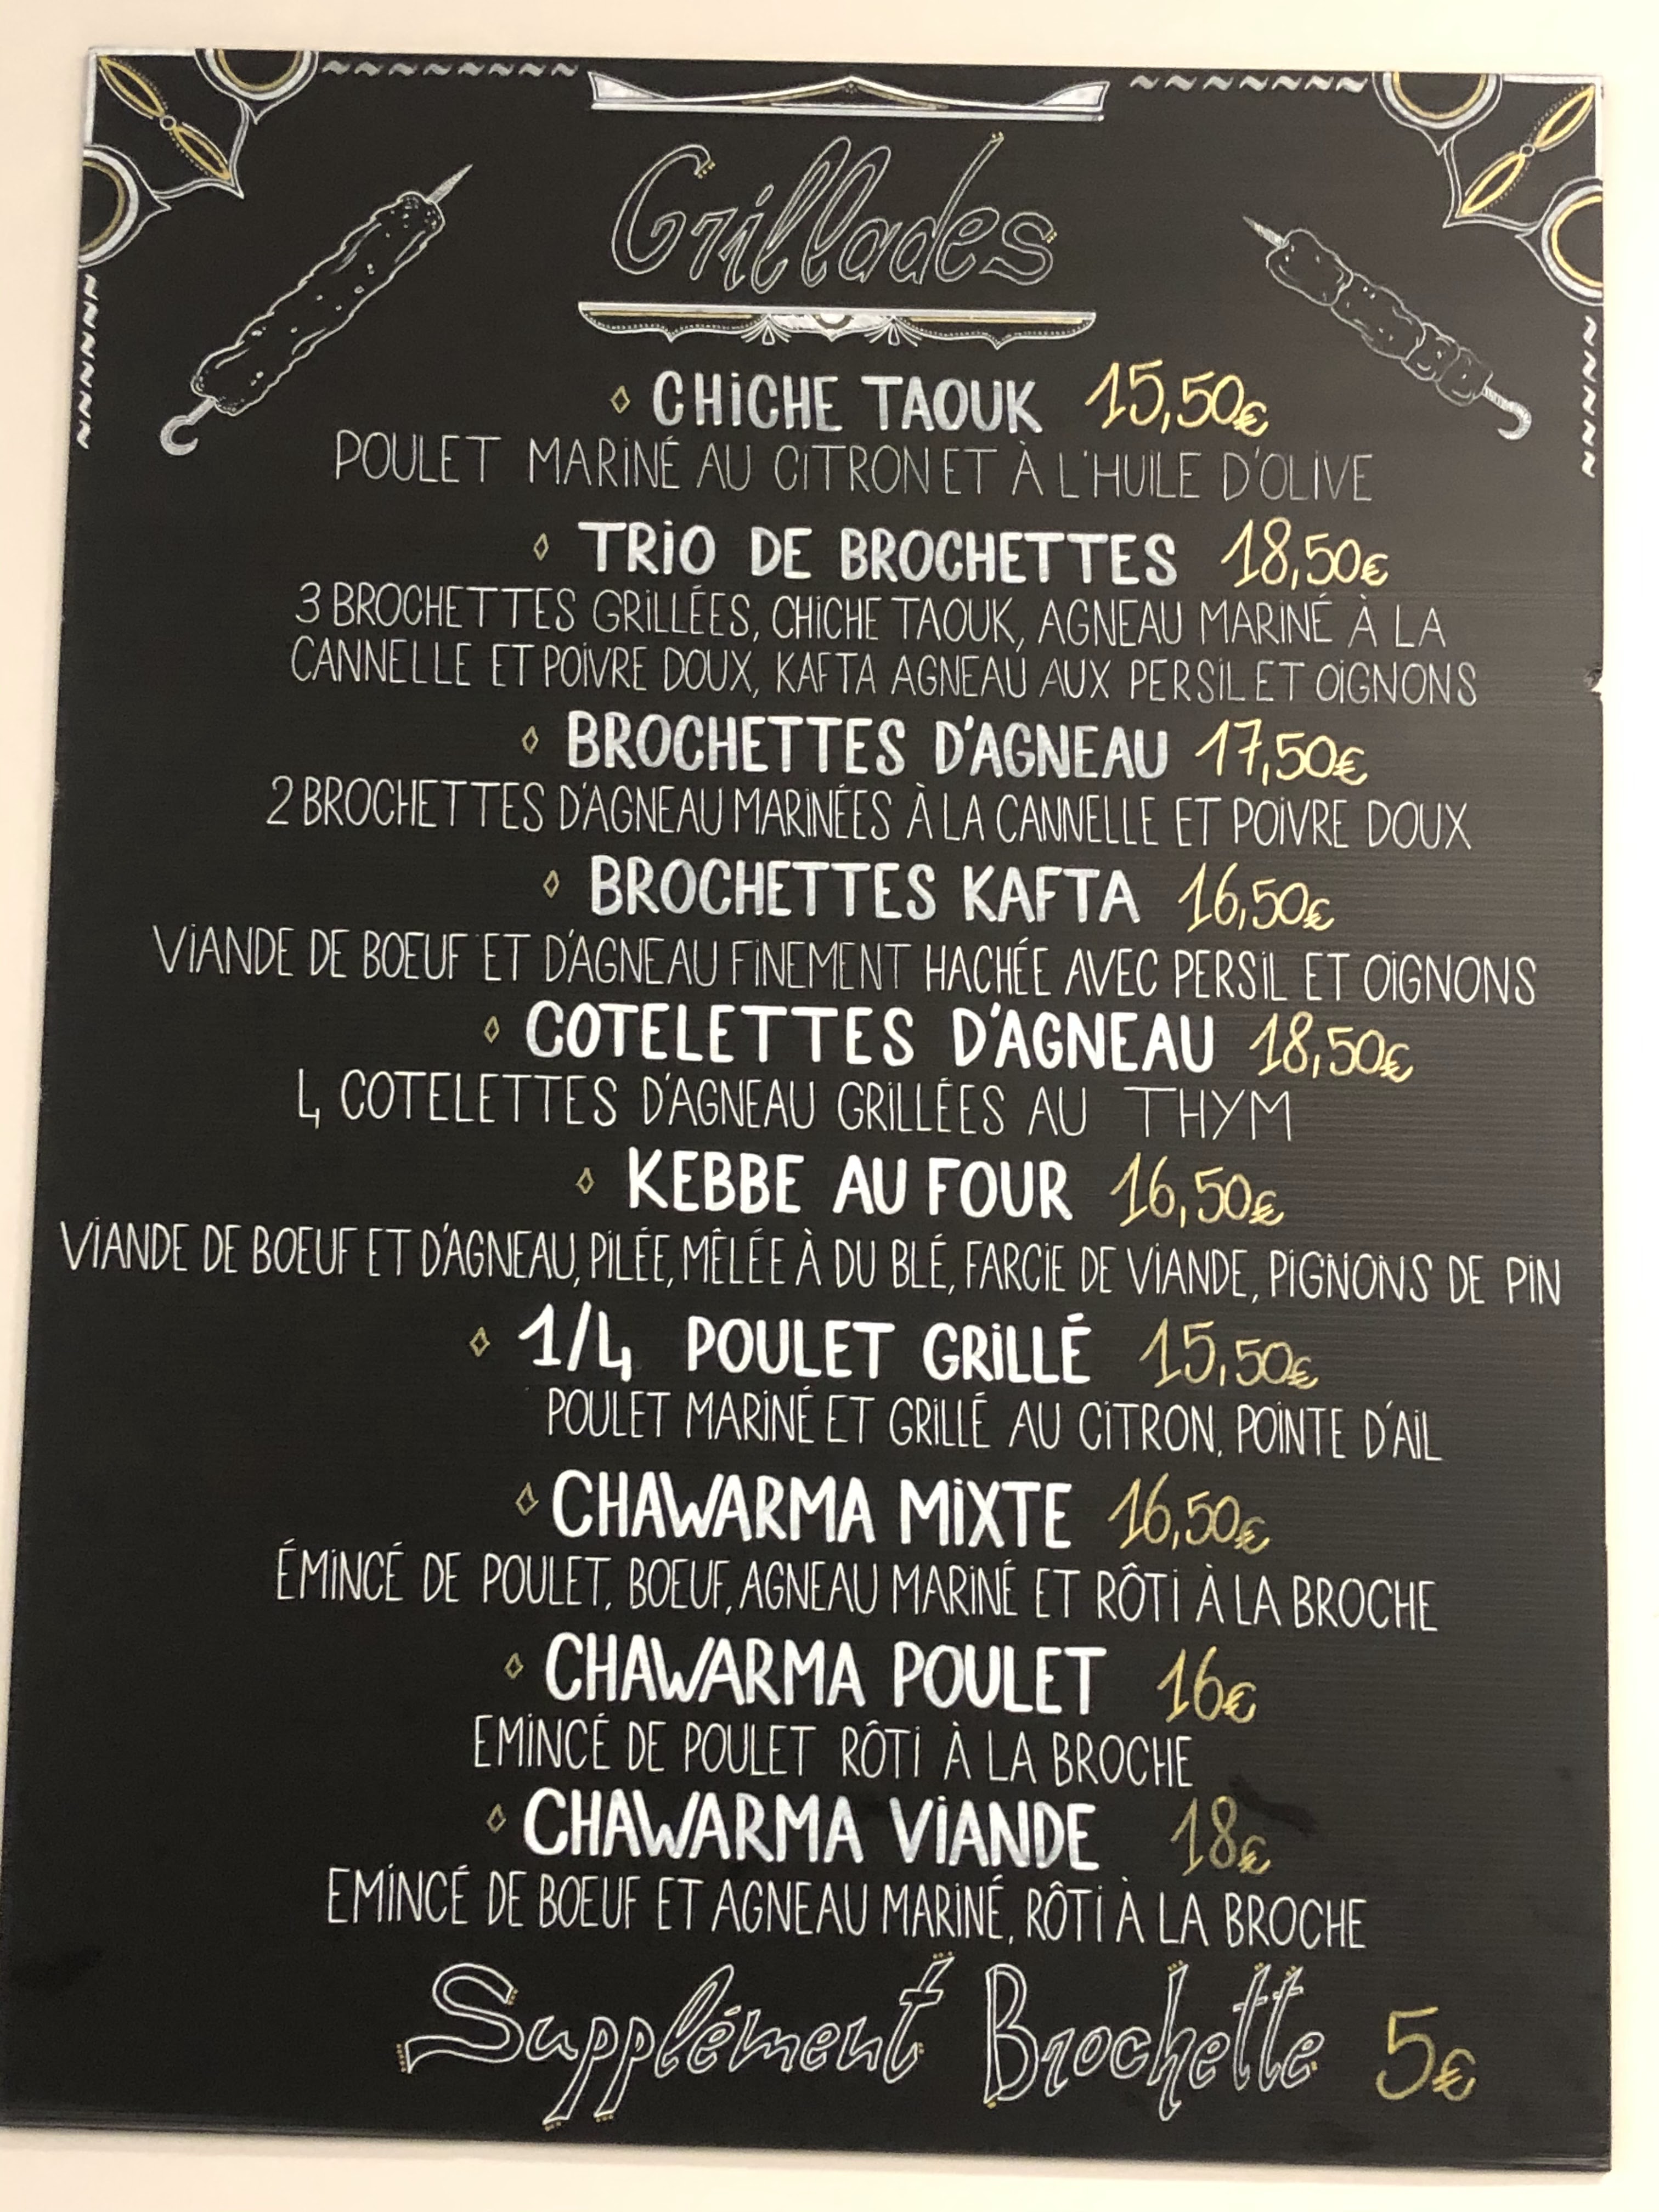 Grillades
CHiCHE TAOUK 15,50€
POULET MARiNÉ AU CiTRON ET À L'HUILE D'OLIVE
TRiO DE BROCHETTES 18,50€
3 BROCHETTES GRiLLÉES, CHiCHE TAOUK, AGNEAU MARiNÉ À LA
CANNELLE ET POiVRE DOUX, KAFTA AGNEAU AUX PERSiL ET OiGNONS
BROCHETTES D'AGNEAU 17,50€
2 BROCHETTES D'AGNEAU MARiNÉES À LA CANNELLE ET POiVRE DOUX
BROCHETTES KAFTA 16,50€
ViANDE DE BOEUF ET D'AGNEAU FiNEMENT HACHÉE AVEC PERSiL ET OiGNONS
COTELETTES D'AGNEAU 18,50€
4 COTELETTES D'AGNEAU GRiLLÉES AU THYM
KEBBE AU FOUR 16,50€
ViANDE DE BOEUF ET D'AGNEAU, PiLÉE, MÊLÉE À DU BLÉ, FARCiE DE ViANDE, PiGNONS DE PiN
1/4 POULET GRiLLÉ 15,50€
POULET MARiNÉ ET GRiLLÉ AU CiTRON, POiNTE D'AiL
CHAWARMA MiXTE 16,50€
ÉMiNCÉ DE POULET, BOEUF, AGNEAU MARiNÉ ET RÔTi À LA BROCHE
CHAWARMA POULET 16€
EMiNCÉ DE POULET RÔTi À LA BROCHE
CHAWARMA ViANDE 18€
EMiNCÉ DE BOEUF ET AGNEAU MARiNÉ, RÔTi À LA BROCHE
Supplément Brochette 5€